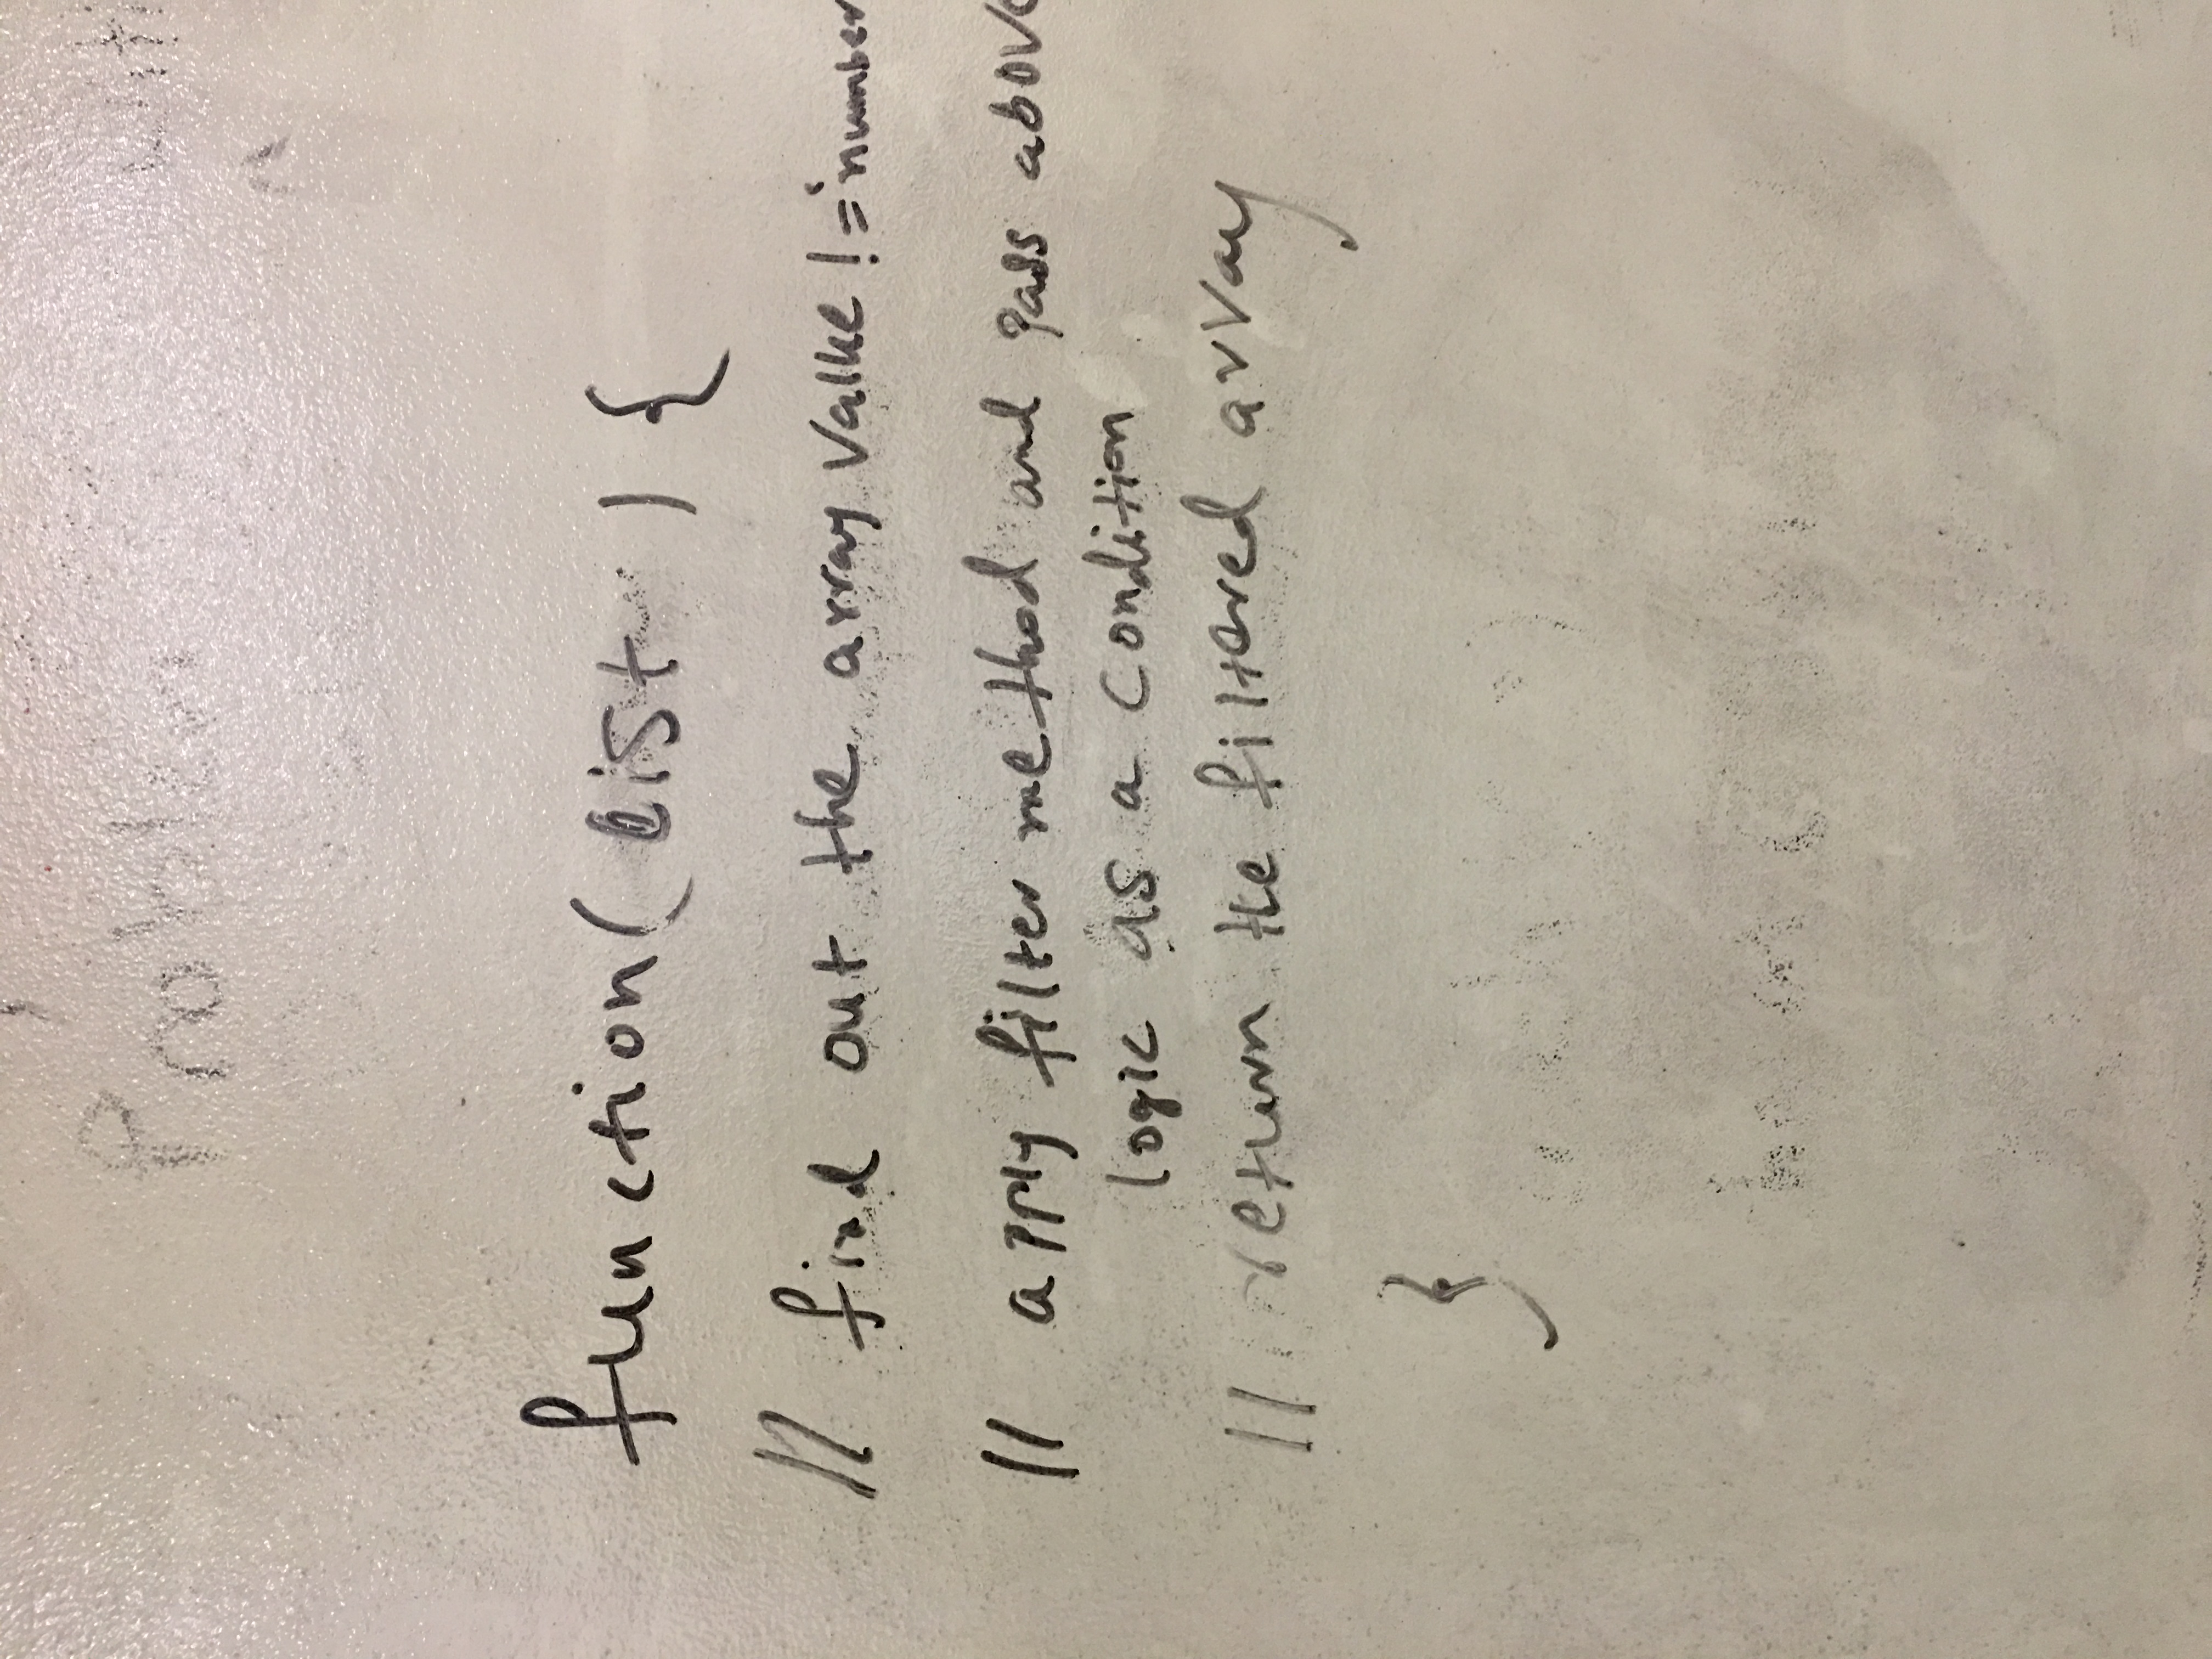 Problem
function( list ) {
// find out the array value != 'number
// apply filter method and pass above
logic as a condition
// return the filtered array
}